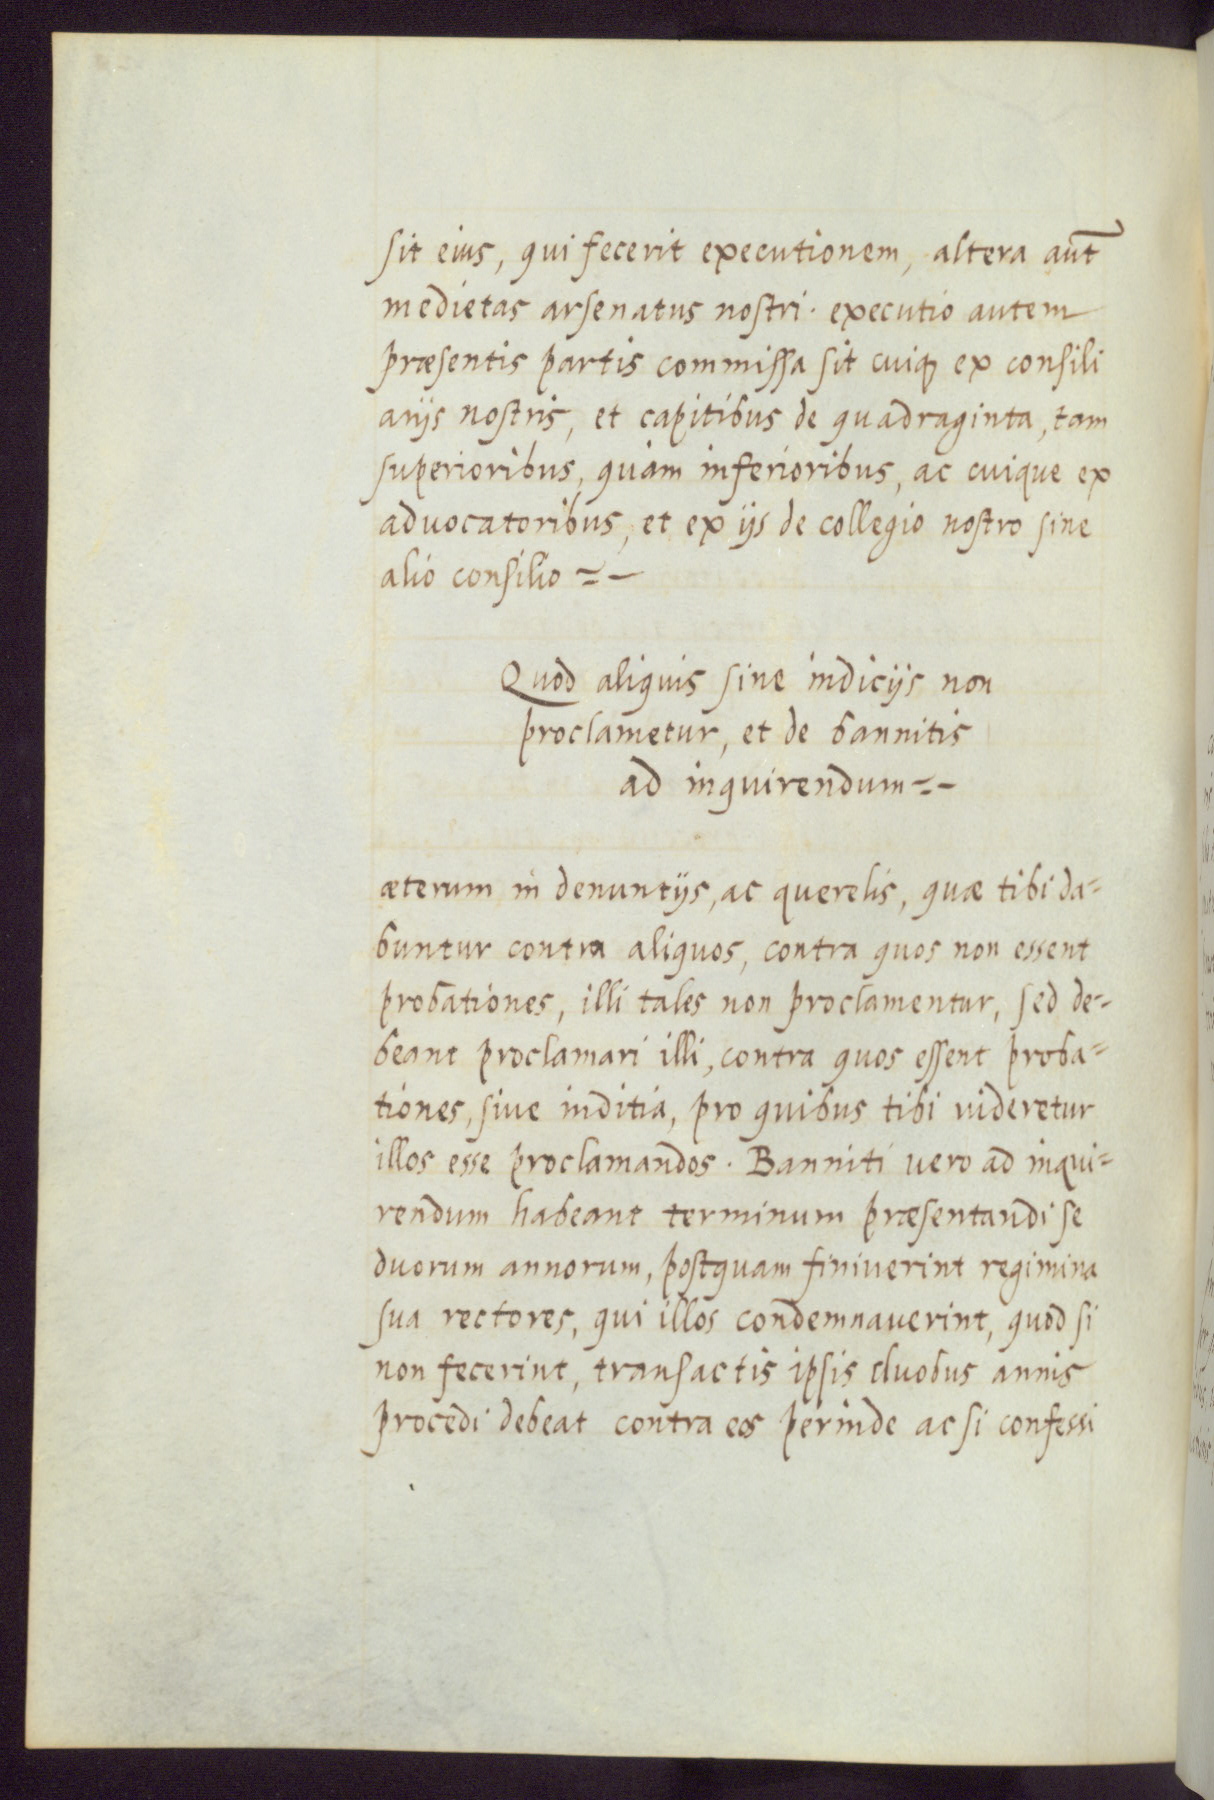 sit eius, qui fecerit executionem, altera aut̄
medietas arsenatus nostri. executio autem
præsentis partis commissa sit cuiq̨ ex consili
arijs nostris, et capitibus de quadraginta, tam
superioribus, quàm inferioribus, ac cuique ex
aduocatoribus, et ex ijs de collegio nostro sine
alio consilio =-
Quod aliquis sine indicijs non
proclametur, et de bannitis
ad inquirendum =-
æterum in denuntijs, ac querelis, quæ tibi da=
buntur contra aliquos, contra quos non essent
probationes, illi tales non proclamentur, sed de=
beant proclamari illi, contra quos essent proba=
tiones, siue inditia, pro quibus tibi uideretur
illos esse proclamandos. Banniti uero ad inqui=
rendum habeant terminum præsentandi se
duorum annorum, postquam finiuerint regimina
sua rectores, qui illos condemnauerint, quod si
non fecerint, transactis ipsis duobus annis
procedi debeat contra eos perinde ac si confessi